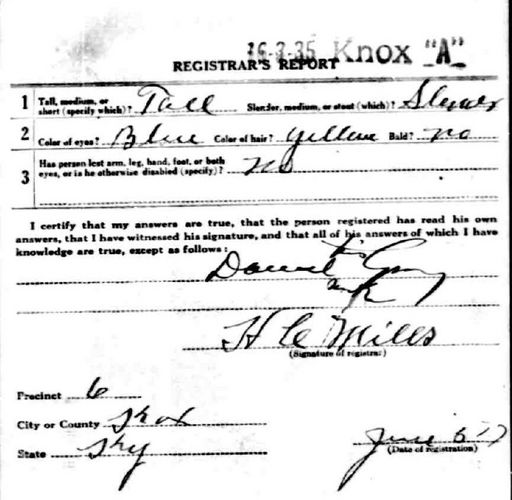 16-3-35 Knox "A"
REGISTRAR'S REPORT
1 Tall, medium, or short (specify which)? Tall Slender, medium, or stout (which)? Slender
2 Color of eyes? Blue Color of hair? yellow Bald? no
3 Has person lost arm, leg, hand, foot, or both
eyes, or is he otherwise disabled (specify)? no
I certify that my answers are true, that the person registered has read his own
answers, that I have witnessed his signature, and that all of his answers of which I have
knowledge are true, except as follows:
his
mark
H C Mills
(Signature of registrar)
Precinct 6
City or County Knox
State Ky
June 5 17
(Date of registration)